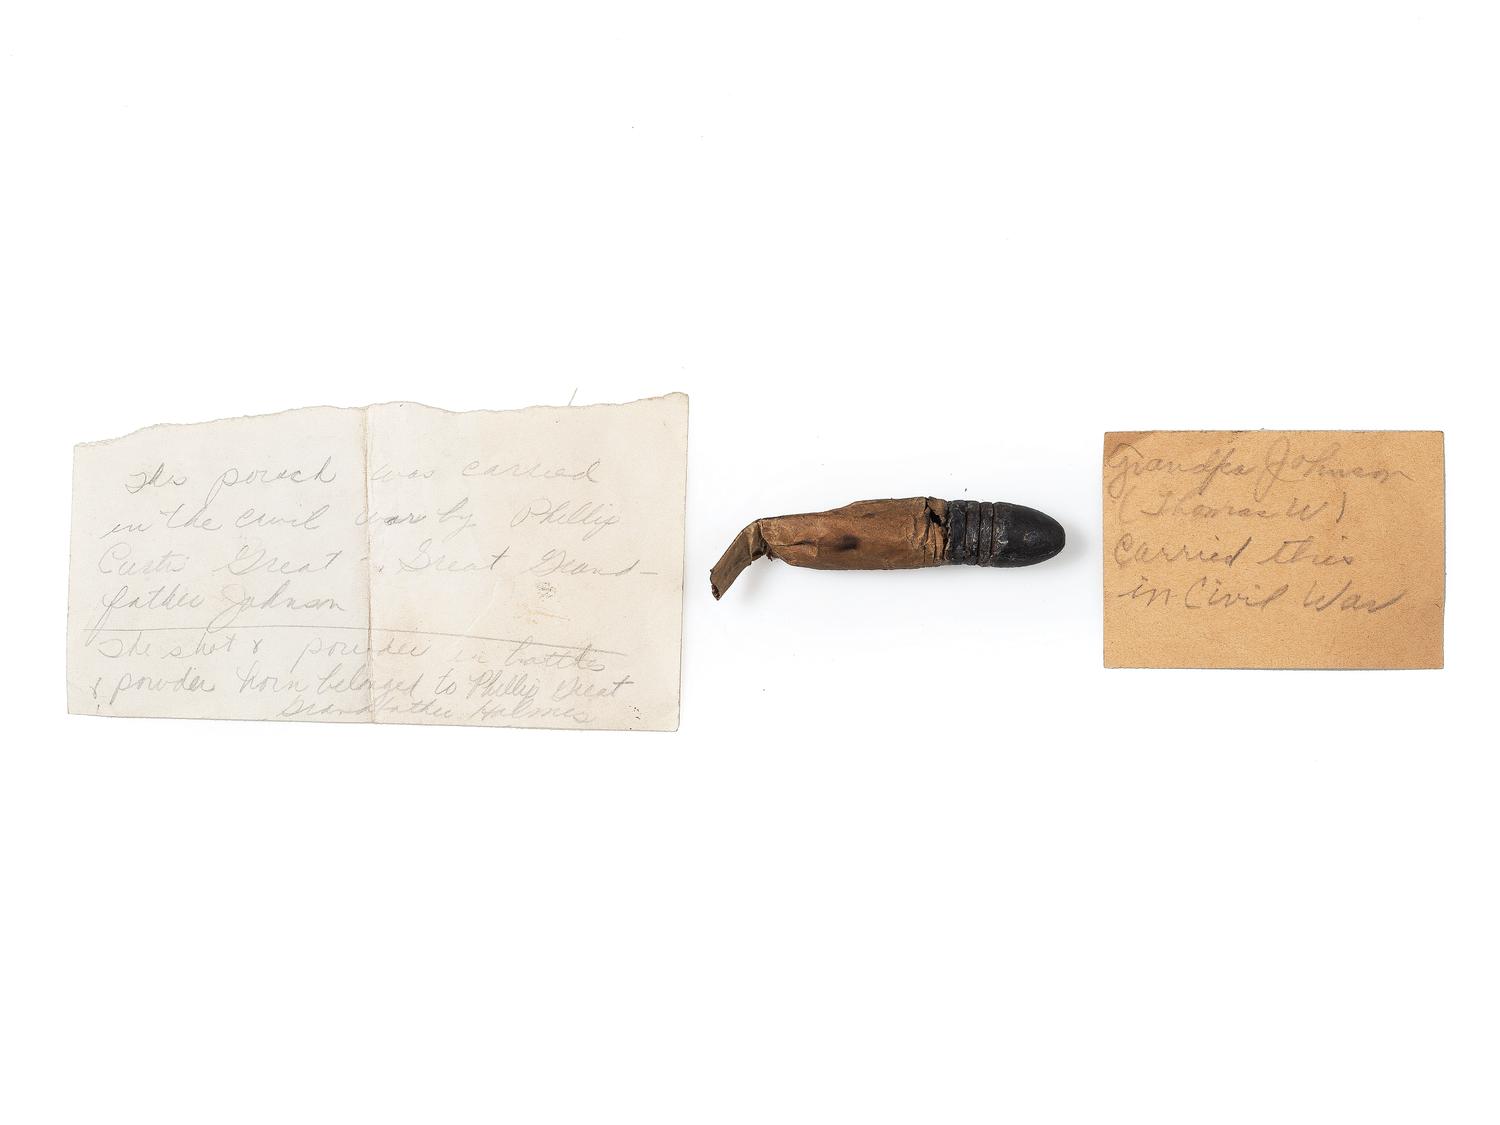 This pouch was carried
in the civil war by Phillip
Custi Great - Great Grand-
father Johnson
The shot & powder in bottles
& powder horn belonged to Phillip Great
Grandfather Holmes
Grandpa Johnson
(Thomas W)
Carried this
in Civil War